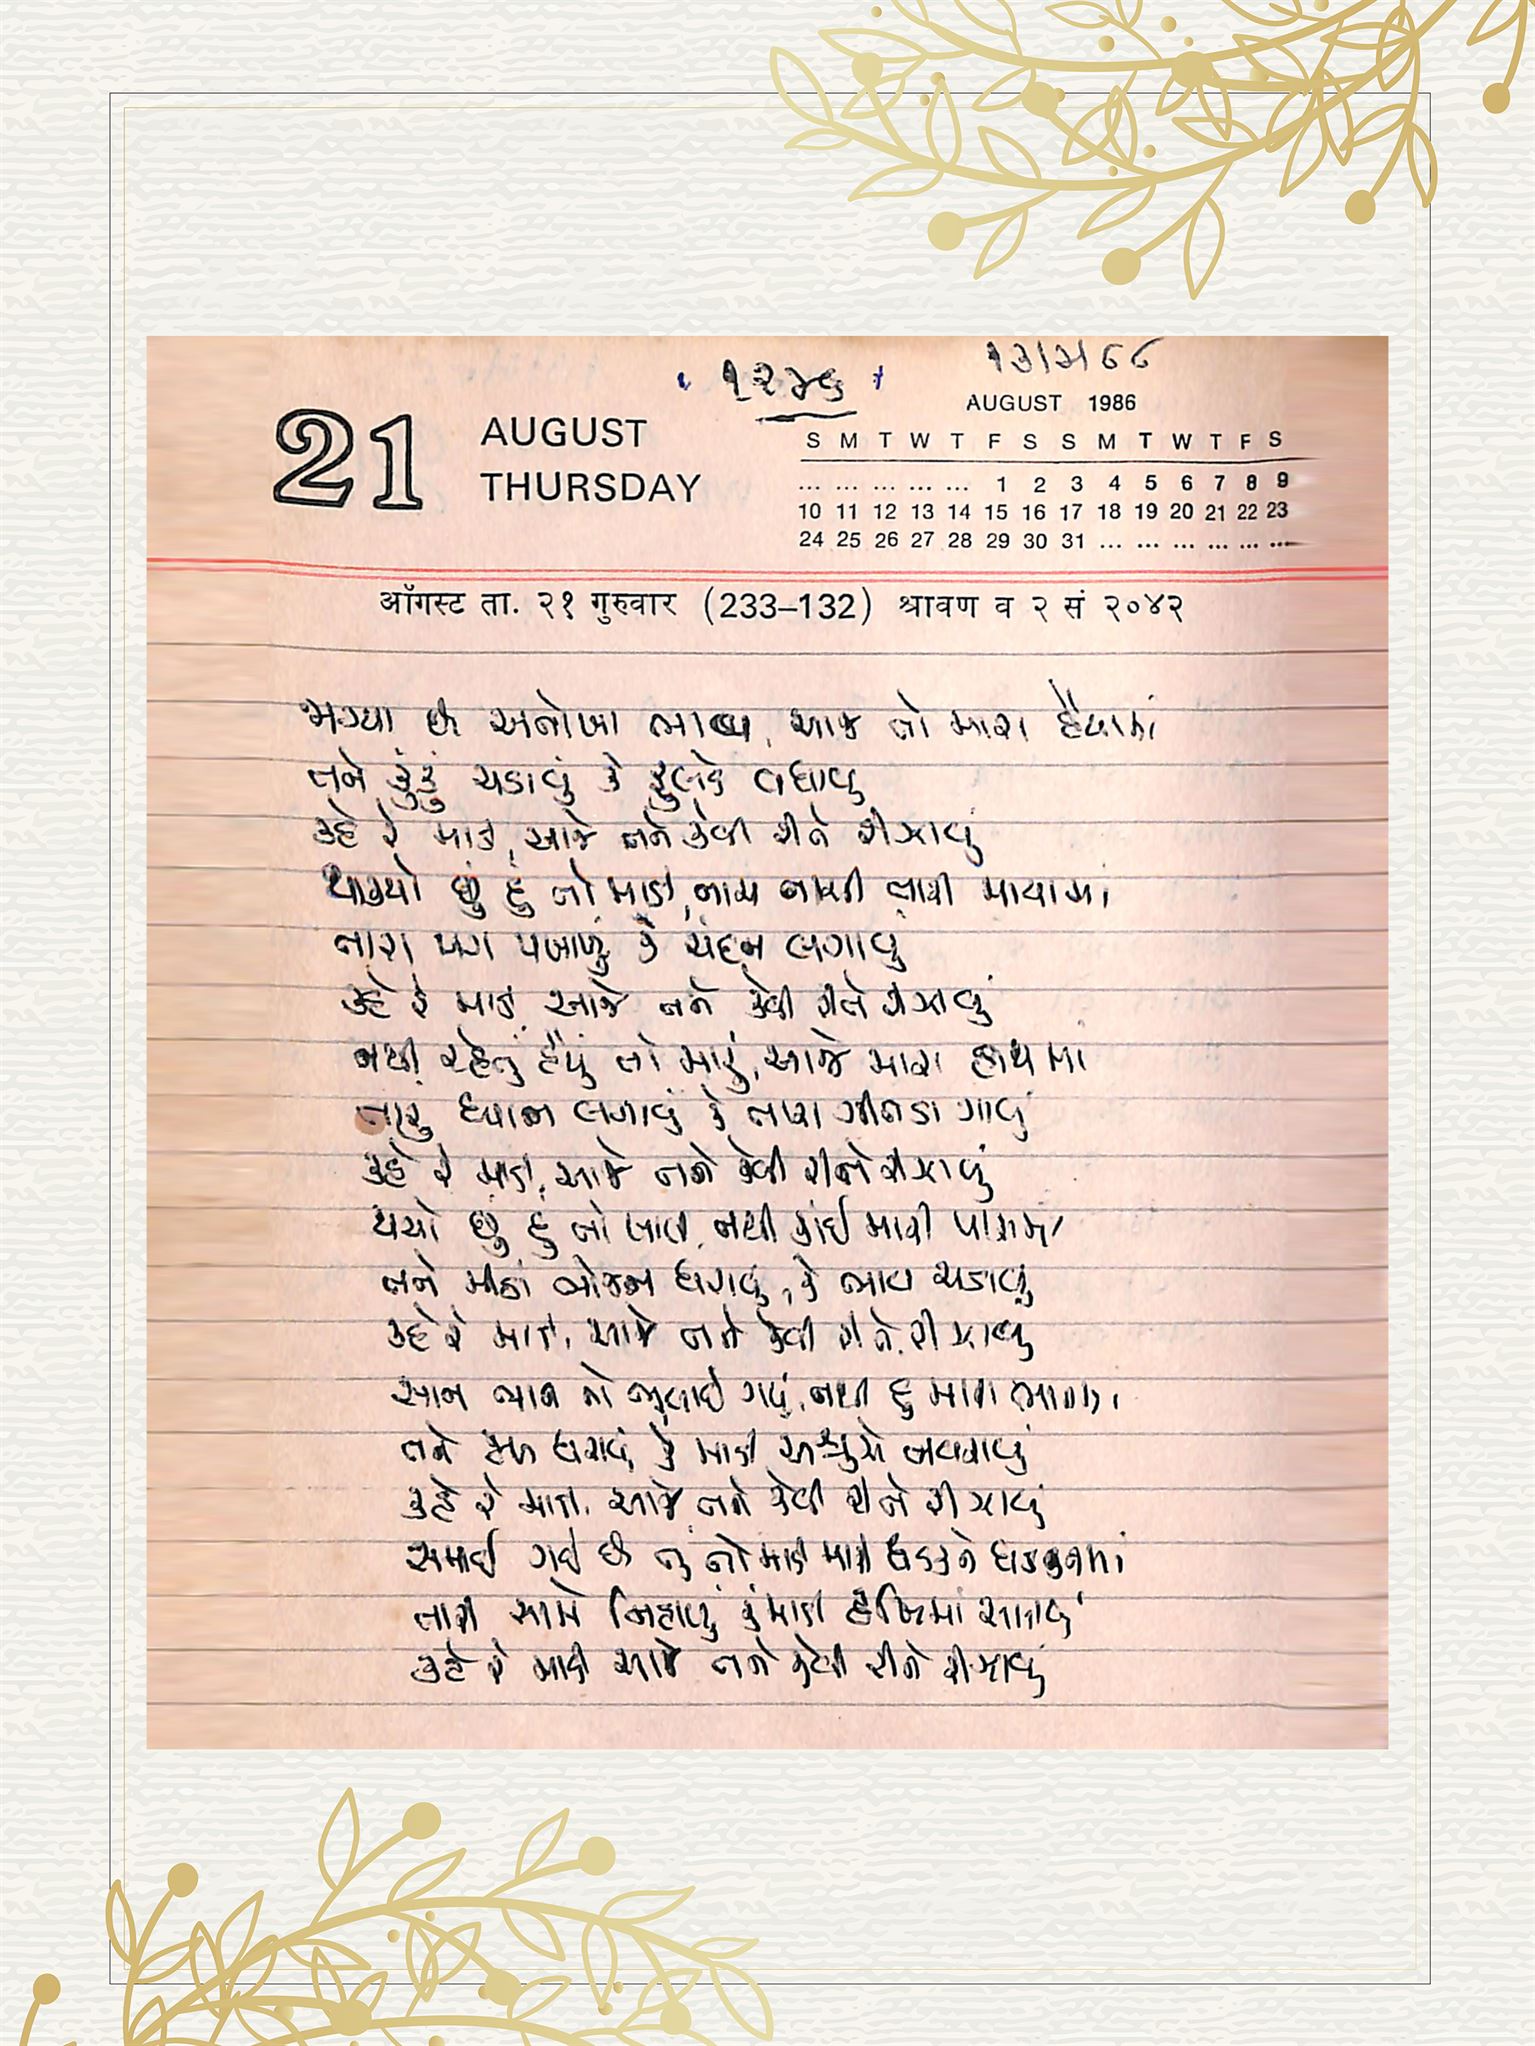 ૧૨૪૬
21
AUGUST
THURSDAY
AUGUST 1986
S M T W T F S S M T W T F S
... ... ... ... ... 1 2 3 4 5 6 7 8 9
10 11 12 13 14 15 16 17 18 19 20 21 22 23
24 25 26 27 28 29 30 31 ... ... ... ... ... ...
ऑगस्ट ता. २१ गुरुवार (233–132) श्रावण व २ सं २०४२
જાગ્યા છે અનોખા ભાવ, આજ તો મારા હૈયામાં
તને કુંકું ચડાવું કે ફુલડે વધાવું
કહે રે માડી, આજે તને કેવી રીતે રીઝાવું
થાક્યો છું હું તો માડી, નાચ નાચી તારી માયામાં
તારા પગ પખાળું કે ચંદન લગાવું
કહે રે માડી આજે તને કેવી રીતે રીઝાવું
નથી રહેતું હૈયું તો મારું, આજે મારા હાથમાં
તારું ધ્યાન લગાવું કે તારા ગીતડા ગાવું
કહે રે માડી, આજે તને કેવી રીતે રીઝાવું
થયો છું હું તો ખાલી, નથી કાંઈ મારી પાસમાં
તને મીઠાં ભોજન ધરાવું, કે ભાવ ચડાવું
કહે રે માડી, આજે તને કેવી રીતે રીઝાવું
સાન ભાન તો ભુલાઈ ગયું, નથી હું મારા ભાનમાં
તને ફળ ધરાવું કે માડી અશ્રુએ નવરાવું
કહે રે માડી, આજે તને કેવી રીતે રીઝાવું
સમાઈ ગઈ છે તું તો માડી મારી ધડકને ધડકનમાં
તારી સામે નિહાળું કે માડી હૈયામાં સમાવું
કહે રે માડી આજે તને કેવી રીતે રીઝાવું